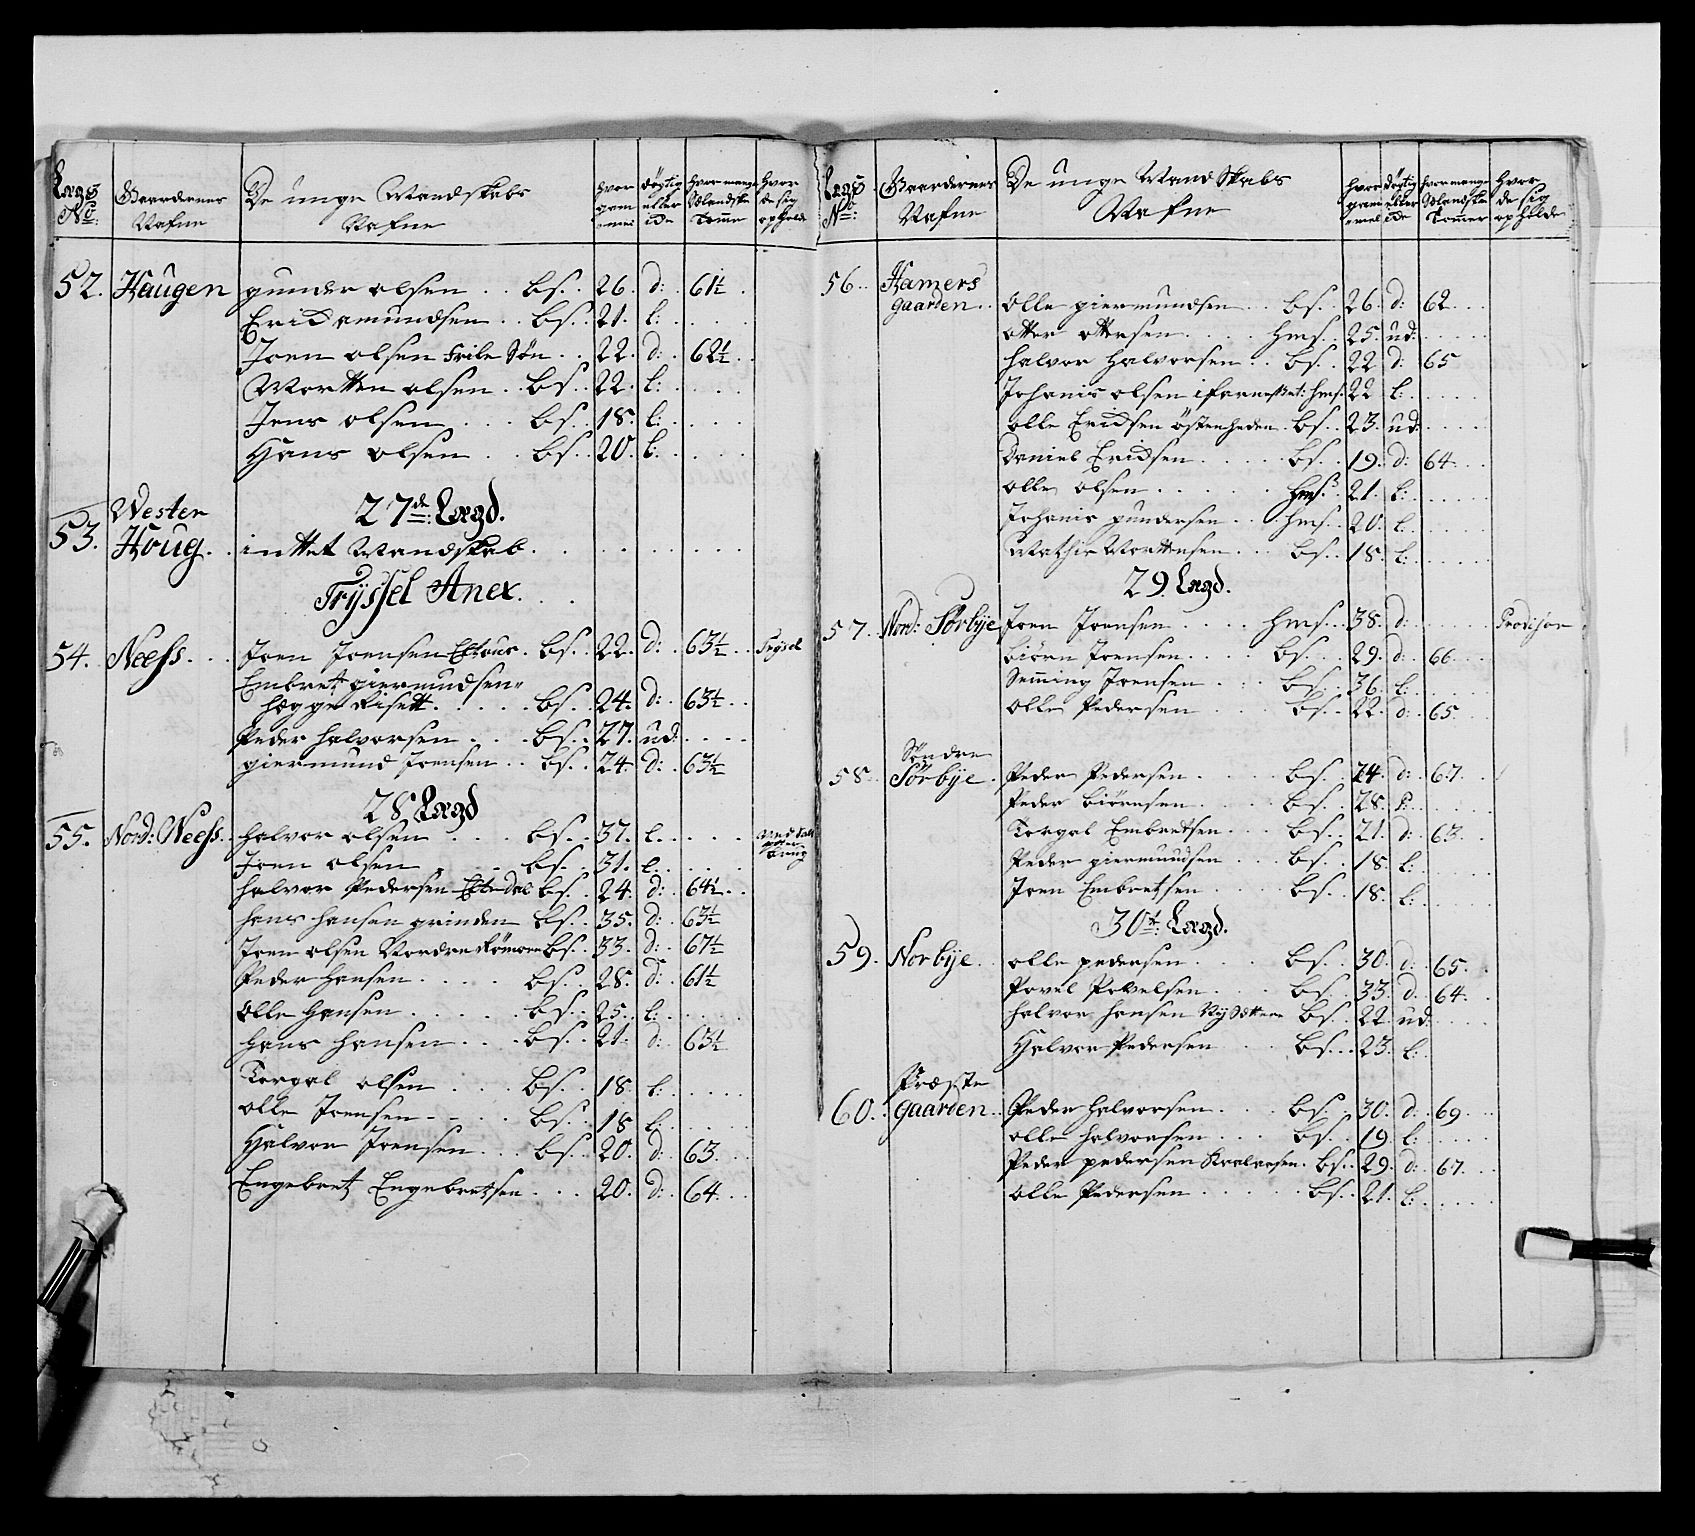 Lægs No: Gaardernes Nafne De unge Mandskabs Nafne hvor gam emel døgtig eller ide hvor mange Selandske Tomme hvor de sig opholde
52. Haugen gunder olsen .. bs. 26. d: 61½
Erich amundsen .. bs. 21. l:
Joen olsen Frile Søn .. 22. d: 62½
Mortten olsen .. bs. 22. l:
Jens olsen ... bs. 18. l:
Hans olsen .. bs. 20. l.
27de: Lægd.
53. Wester Houg. inttet Mandskab.
Tryssel Anex.
54. Neess. Joen Joensen bs. 22. d: 63½ Trysel
Embret giermundsen
hegge Risett bs. 24. d: 63½
Peder halvorsen ... bs. 27. ud:
giermund Joensen .. bs. 24. d: 63½
28 Lægd
55. Nord: Neess. halvor olsen .. bs. 37. l.
Joen olsen .. bs. 31. l.
halvor Pedersen bs. 24. d: 64½
hans hansen grinden bs. 35. d: 63½
Joen olsen Nordre bs. 33. d: 67½
Peder hansen .... bs. 28. d: 61½
olle hansen ..... bs. 25. l:
hans hansen ... bs. 21. d: 63½
Torgal olsen ... bs. 18. l:
olle Joensen .... bs. 18 l:
Halvor Joensen ... bs. 20. d: 63.
Engebret Engebretsen ... 20. d: 64.
Lægs No: Gaardernes Nafne De unge Mand Skabs Nafne hvor gam emel døgtig eller ide hvor mange Selandske Tommer hvor de sig opholde
56. Hamers gaarden. olle giermundsen .. bs. 26. d: 62
otter ottersen .... hms. 25. ud:
halvor halvorsen .. bs. 22 d: 65
Johanis olsen hms. 22 l:
olle Erichsen östenheden. bs. 23. ud:
Daniel Erichsen .... bs. 19. d: 64.
olle olsen .... hms. 21. l:
Johanis gundersen .. hms. 20. l:
Mathis Mortensen ... bs. 18. l:
29. Lægd.
57. Nord: Sørbÿe Joen Joensen .... hms. 38. d:
biørn Joensen .... bs. 29. d: 66.
Semming Joensen ... bs. 36. l:
olle Pedersen ... bs. 22. d: 65.
58. Søndre Sørbÿe. Peder Pedersen .... bs. 24. d: 67.
Peder biørnsen .... bs. 28. l:
Torgal Embretsen ... bs. 21. d: 63.
Peder giermundsen ... bs. 18. l:
Joen Embretsen .... bs. 18. l:
30te: Lægd.
59. Norbÿe. olle pedersen .... bs. 30. d: 65.
Povel Povelsen .... bs. 33. d: 64.
halvor hansen bs. 22. ud:
Halvor Pedersen ... bs. 23. l:
60. Præste gaarden. Peder halvorsen ... bs. 30. d: 69.
olle halvorsen ... bs. 19. l:
Peder pedersen bs. 29. d: 67.
olle Pedersen ...... bs. 21. l: